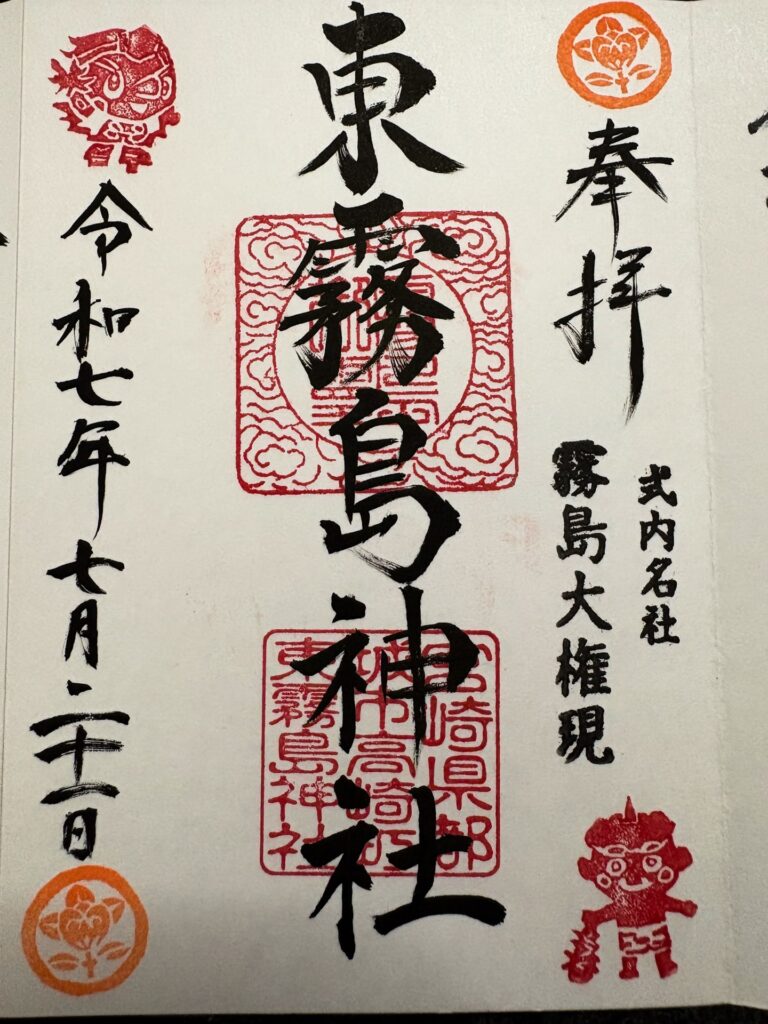 奉拝
式内名社
霧島大権現
東霧島神社
宮崎県都
城市高崎町
東霧島神社
令和七年七月二十一日